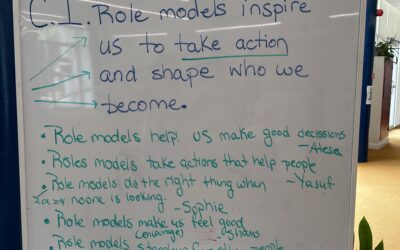 C.I. Role models inspire
us to take action
and shape who we
become.
• Role models help us make good decissions
-Atesa
• Roles models take actions that help people
-Yasuf
• Role models do the right thing when
noone is looking.
-Sophie
• Role models make us feel good
• Role models